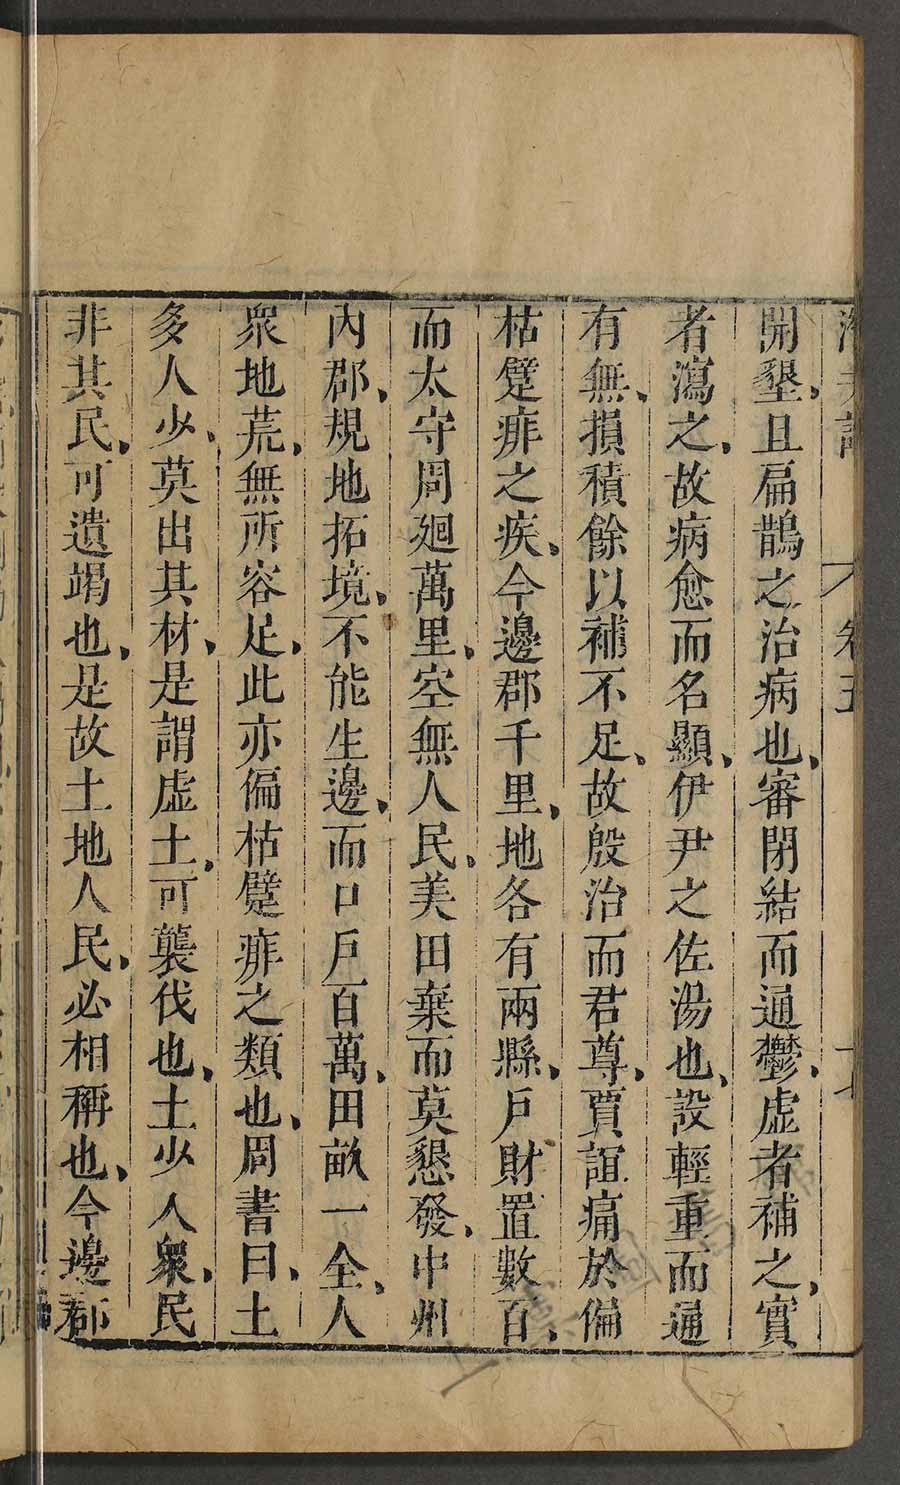 卷五
開墾、且扁鵲之治病也、審閉結而通鬱、虛者補之、實
者瀉之、故病愈而名顯、伊尹之佐湯也、設輕重而通
有無、損積餘以補不足、故殷治而君尊、賈誼痛於偏
枯躄痱之疾、今邊郡千里、地各有兩縣、戶財置數百、
而太守周廻萬里、空無人民、美田棄而莫懇發、中州
內郡、規地拓境、不能生邊、而口戶百萬、田畝一全、人
眾地荒、無所容足、此亦偏枯躄痱之類也、周書曰、土
多人少、莫出其材、是謂虛土、可襲伐也、土少人眾、民
非其民、可遺竭也、是故土地人民、必相稱也、今邊郡